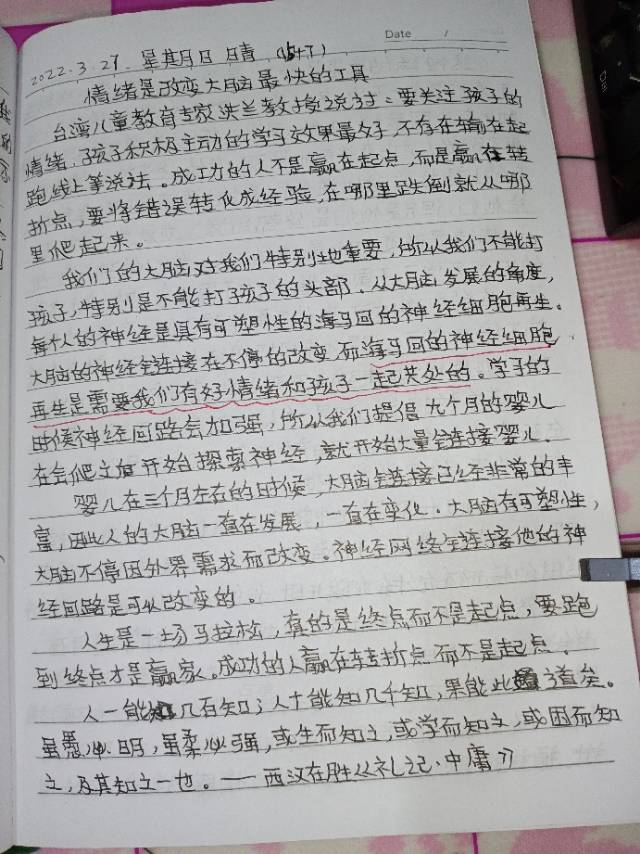 Date /
2022.3.27. 星期日 晴 (15+7)
情绪是改变大脑最快的工具
台湾儿童教育专家洪兰教授说过：要关注孩子的
情绪，孩子积极主动的学习效果最好，不存在输在起
跑线上等说法。成功的人不是赢在起点，而是赢在转
折点，要将错误转化成经验，在哪里跌倒就从哪
里爬起来。
我们的大脑对我们特别地重要，所以我们不能打
孩子，特别是不能打孩子的头部。从大脑发展的角度，
每个人的神经是具有可塑性的海马回的神经细胞再生。
大脑的神经链接在不停的改变，而海马回的神经细胞
再生是需要我们有好情绪和孩子一起共处的。学习的
时候神经回路会加强，所以我们提倡九个月的婴儿
在会爬之后开始探索神经，就开始大量链接婴儿。
婴儿在三个月左右的时候，大脑链接已经非常的丰
富，因此人的大脑一直在发展，一直在变化。大脑有可塑性，
大脑不停因外界需求而改变。神经网络链接他的神
经回路是可以改变的。
人生是一场马拉松，真的是终点而不是起点，要跑
到终点才是赢家。成功的人赢在转折点而不是起点。
人一能知几百知；人十能知几千知，果能此道矣。
虽愚必明，虽柔必强，或生而知之，或学而知之，或困而知
之，及其知之一也。——西汉在胜《礼记·中庸》